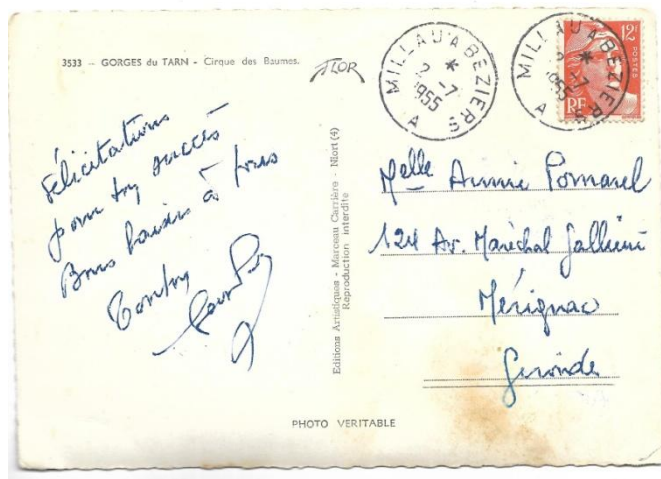 3533 — GORGES du TARN - Cirque des Baumes.
FLOR
MILLAU A BEZIERS
2 -7
1955
A
MILLAU A BEZIERS
-7
1955
A
12F
POSTES
RF
Félicitations
pour ton succès
Bons baisers à tous
Tonton
Editions Artistiques - Marceau Carrière - Niort (4)
Reproduction interdite
Melle Annie Pomarel
124 Av. Maréchal Galliéni
Mérignac
Gironde
PHOTO VERITABLE